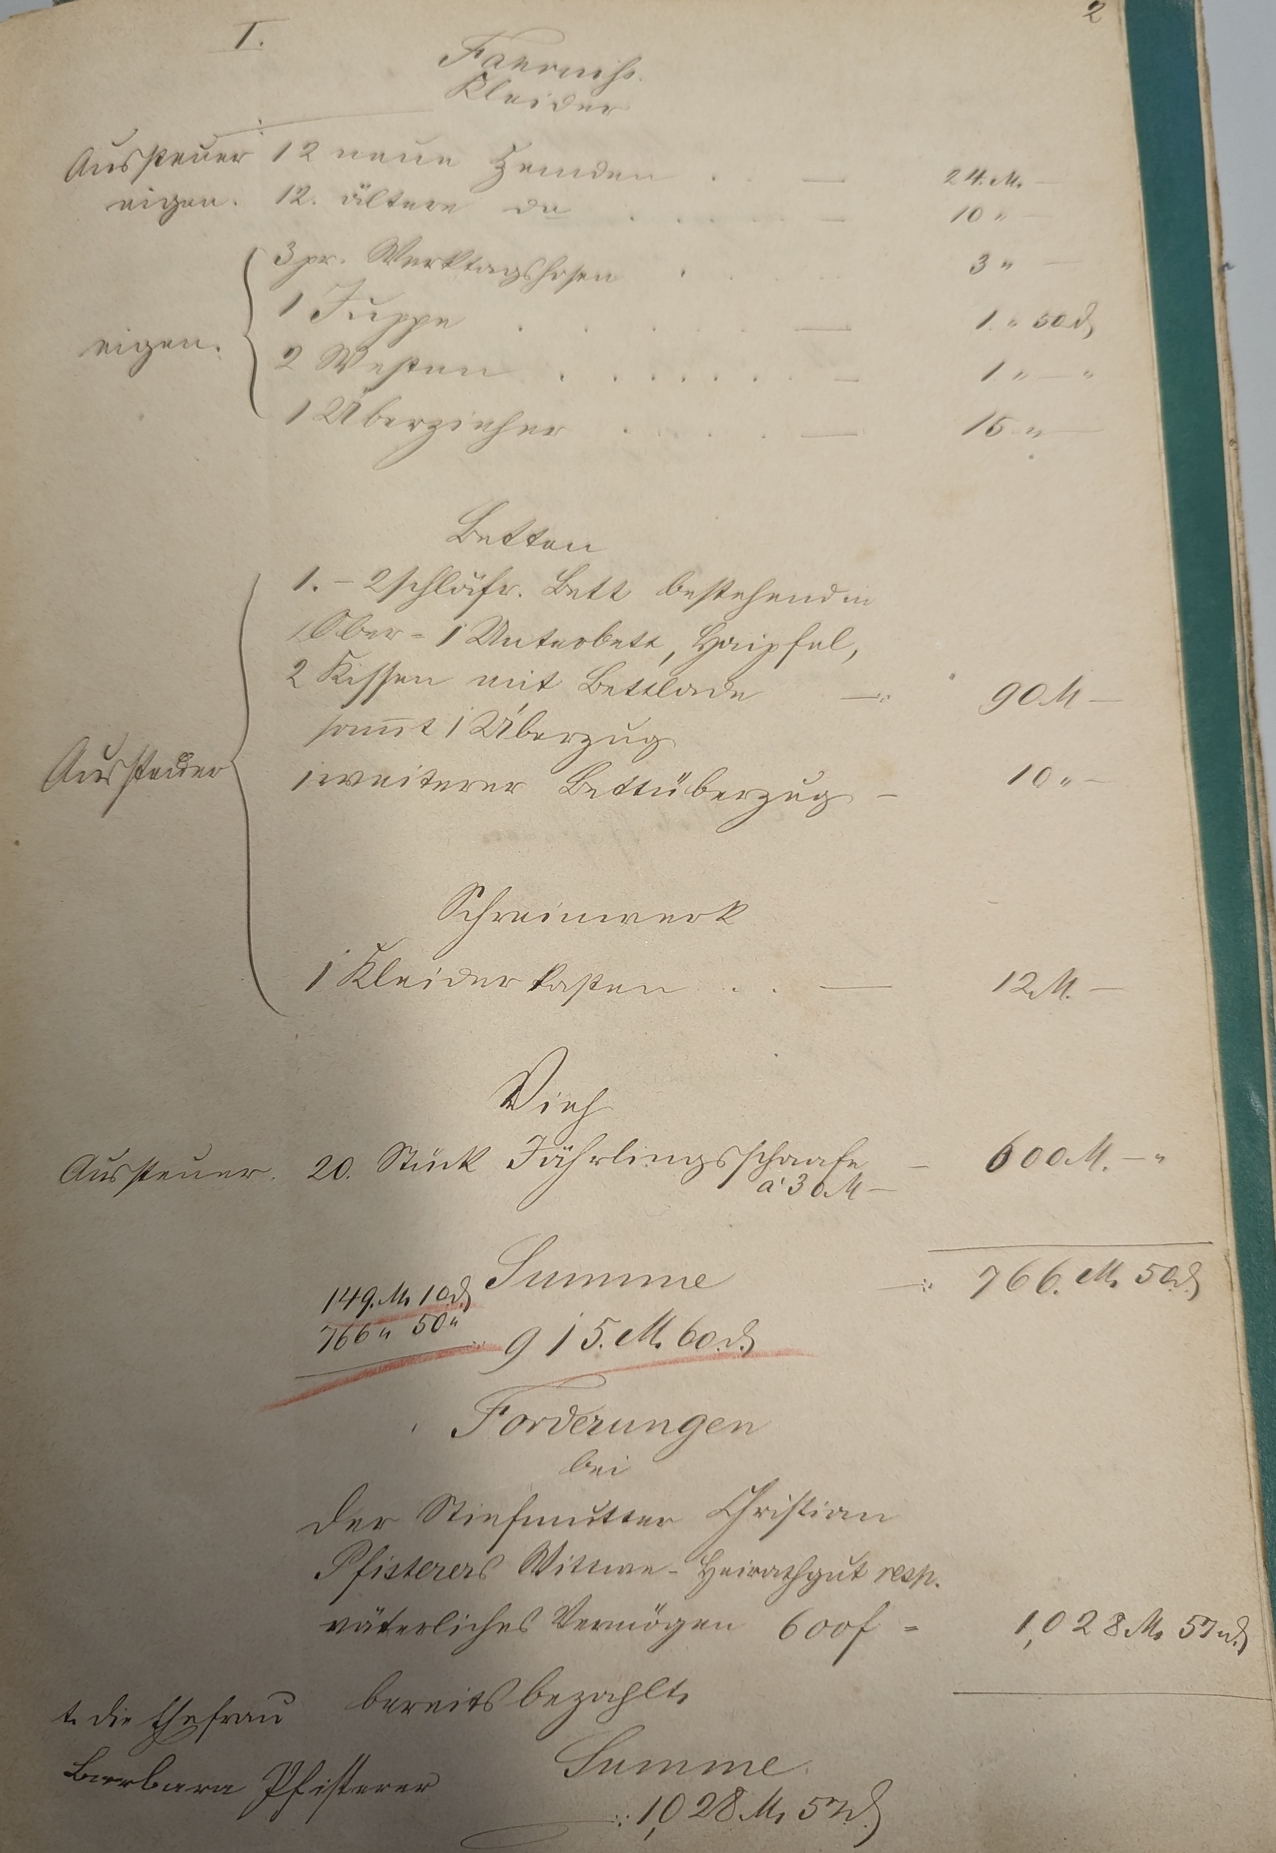 2
I.
Fahrniß.
Kleider
Aussteuer 12 neue Hemden . . — 24. M. —
eigen. 12. ältere do . . . . . — 10 " —
3 pr. Werktagshosen . . . 3 " —
1 Juppe . . . . . — 1. " 50 ₰
eigen. 2 Westen . . . . . . . — 1. " — "
1 Überzieher . . . . — 15 " —
Betten
1. - 2schläfr. Bett bestehend in
1 Ober - 1 Unterbett, Haipfel,
2 Kissen mit Bettlade —: 90 M —
sammt 1 Überzug
Aussteuer
1 weiterer Bettüberzug — 10 " —
Schreinwerk
1 Kleiderkasten . . — 12 M. —
Vieh
Aussteuer. 20. Stück Jährlingsschaafe — 600 M. — "
à 30 M —
Summe —: 766. M. 50 ₰
149. M. 10 ₰
766 " 50 "
: 915. M. 60 ₰
Forderungen
bei
der Stiefmutter Christian
Pfisterers Wittwe - Heirathgut resp.
väterliches Vermögen 600 f = 1,028 M. 57 ₰
bereits bezahlt.
t. die Ehefrau
Barbara Pfisterer
Summe
: 1,028 M. 57 ₰